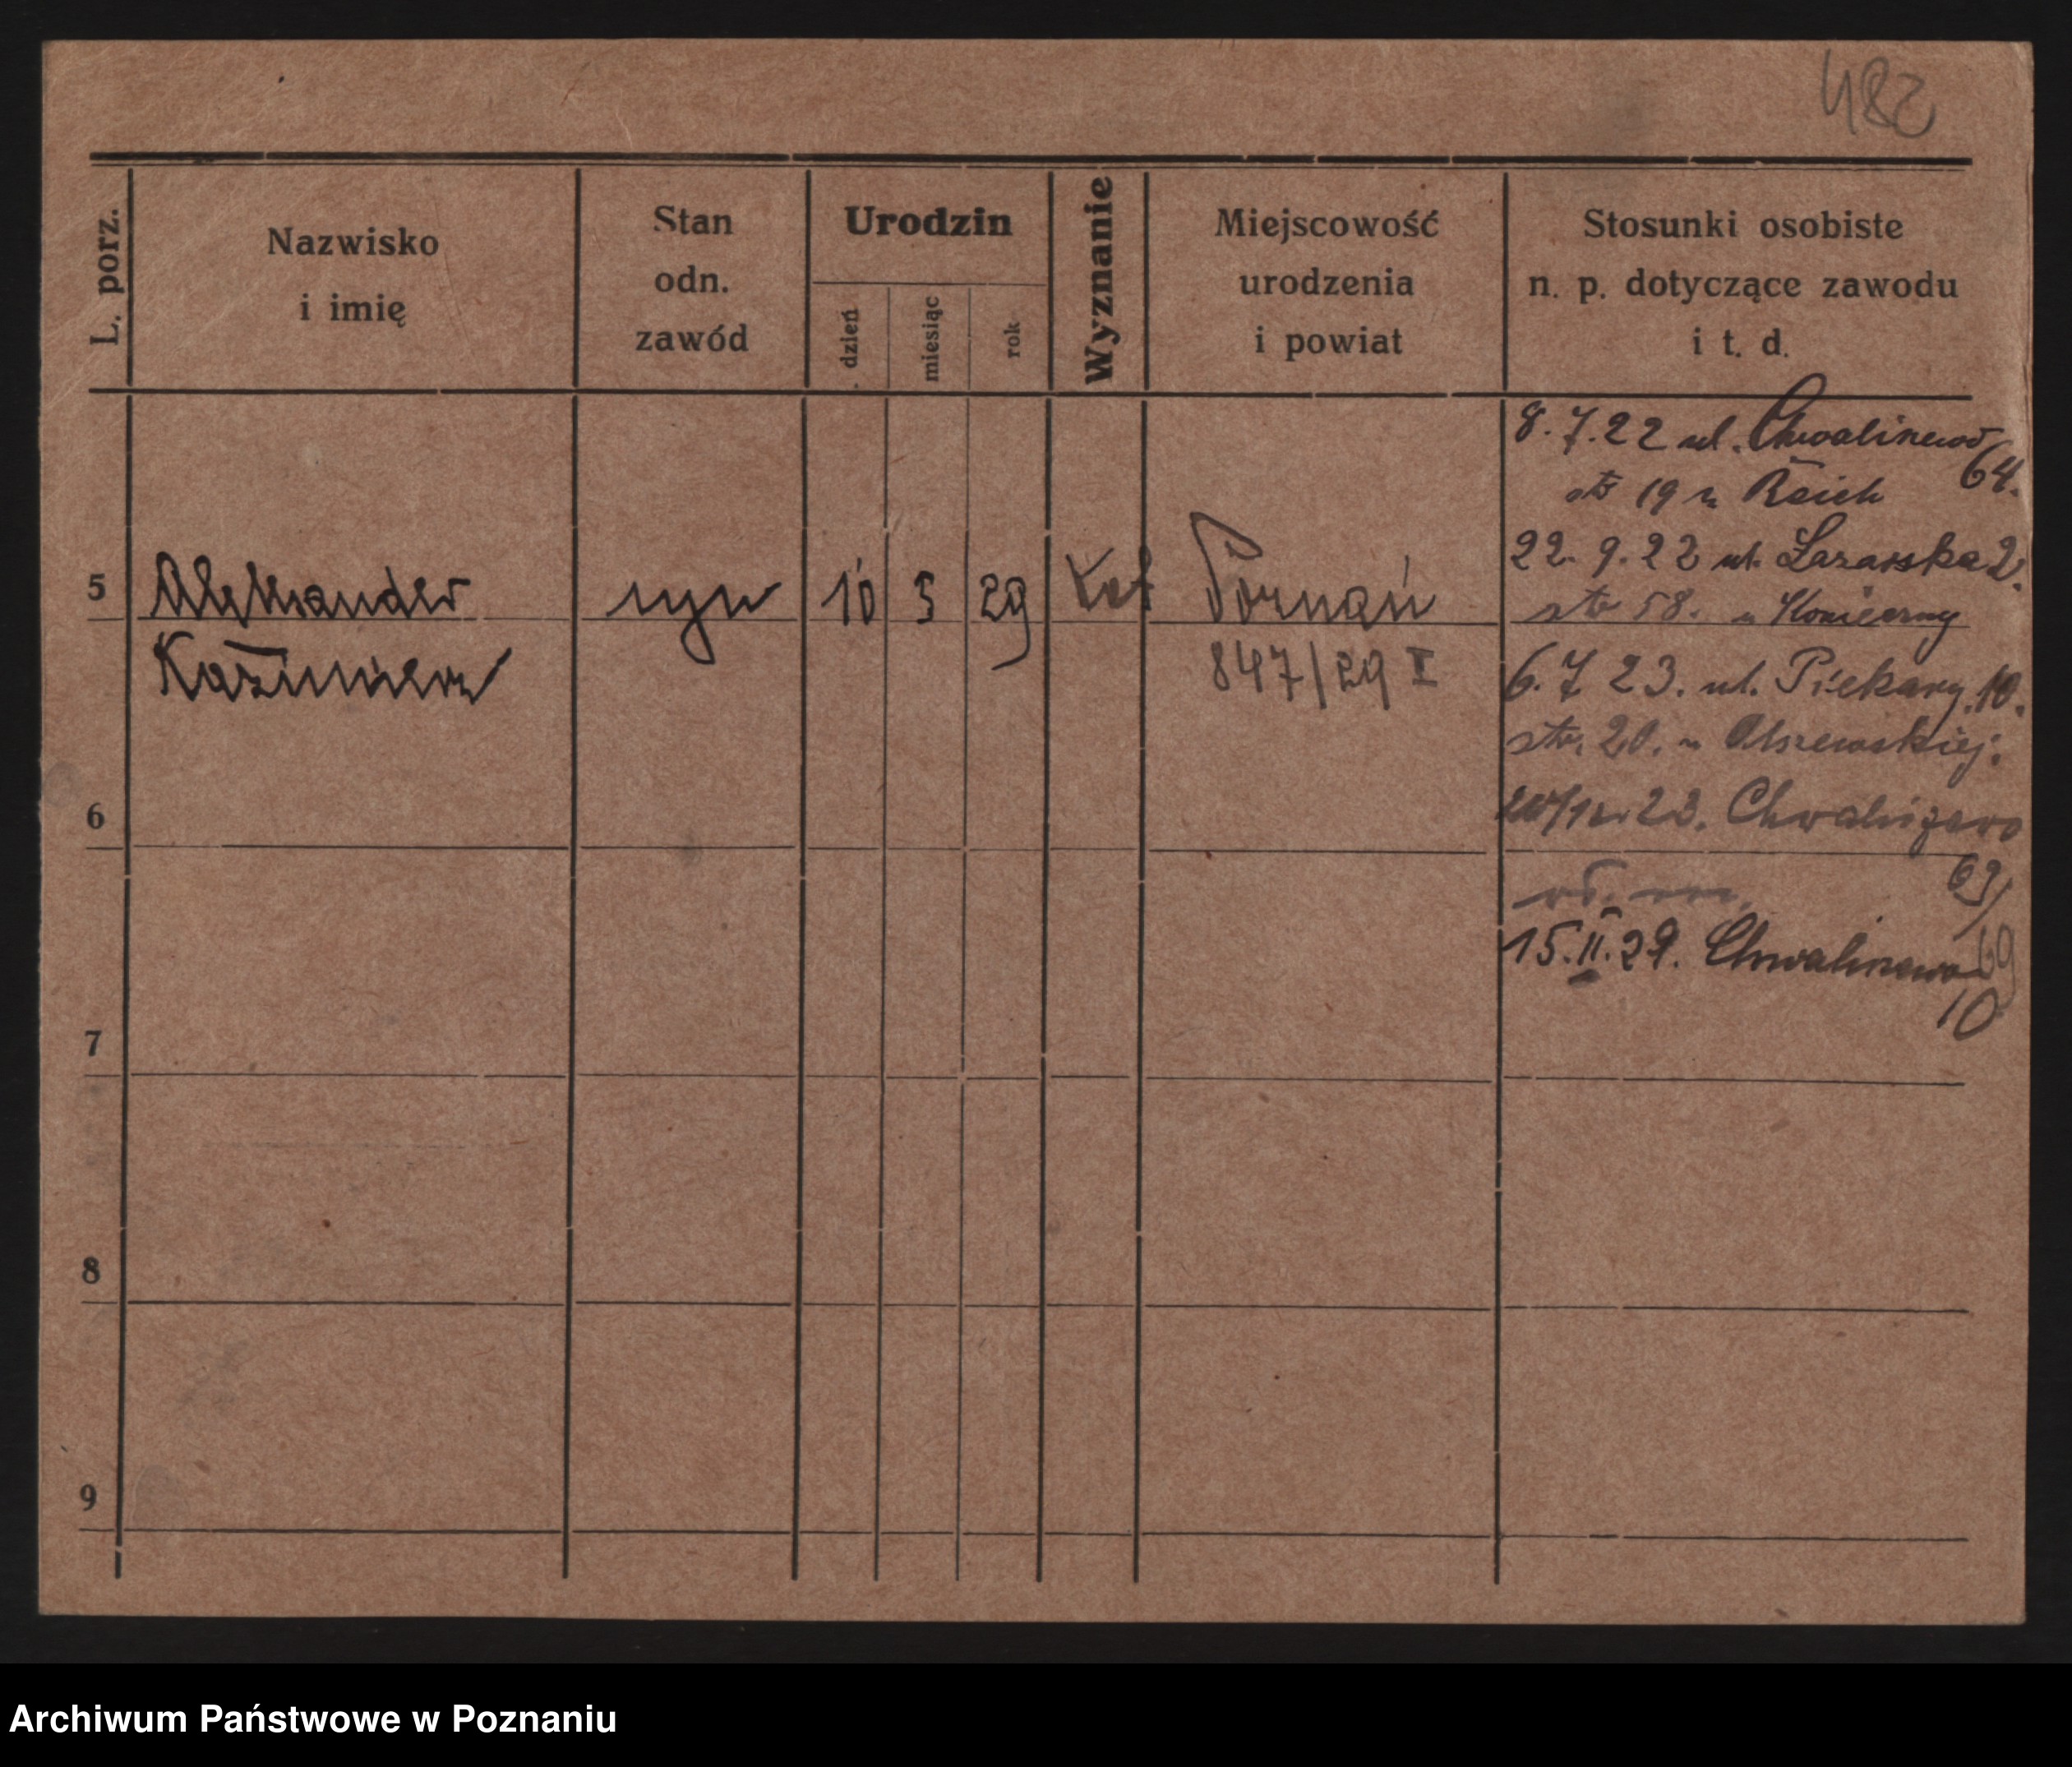 482
L. porz.
Nazwisko
i imię
Stan
odn.
zawód
Urodzin
dzień
miesiąc
rok
Wyznanie
Miejscowość
urodzenia
i powiat
Stosunki osobiste
n. p. dotyczące zawodu
i t. d.
5
Aleksander
Kazimierz
syn
10
3
29
Kat
Poznań
847/29 I
8.7.22 ul. Chwaliszewo
64.
str 19 u Reich
22. 9. 22 ul. Łazarska 2.
str 58. u Konieczny
6. 7 23. ul. Piekary 10.
str. 20. u Olszewskiej.
23. Chwaliszewo
69
15.II.29. Chwaliszewo 69
10
6
7
8
9
Archiwum Państwowe w Poznaniu